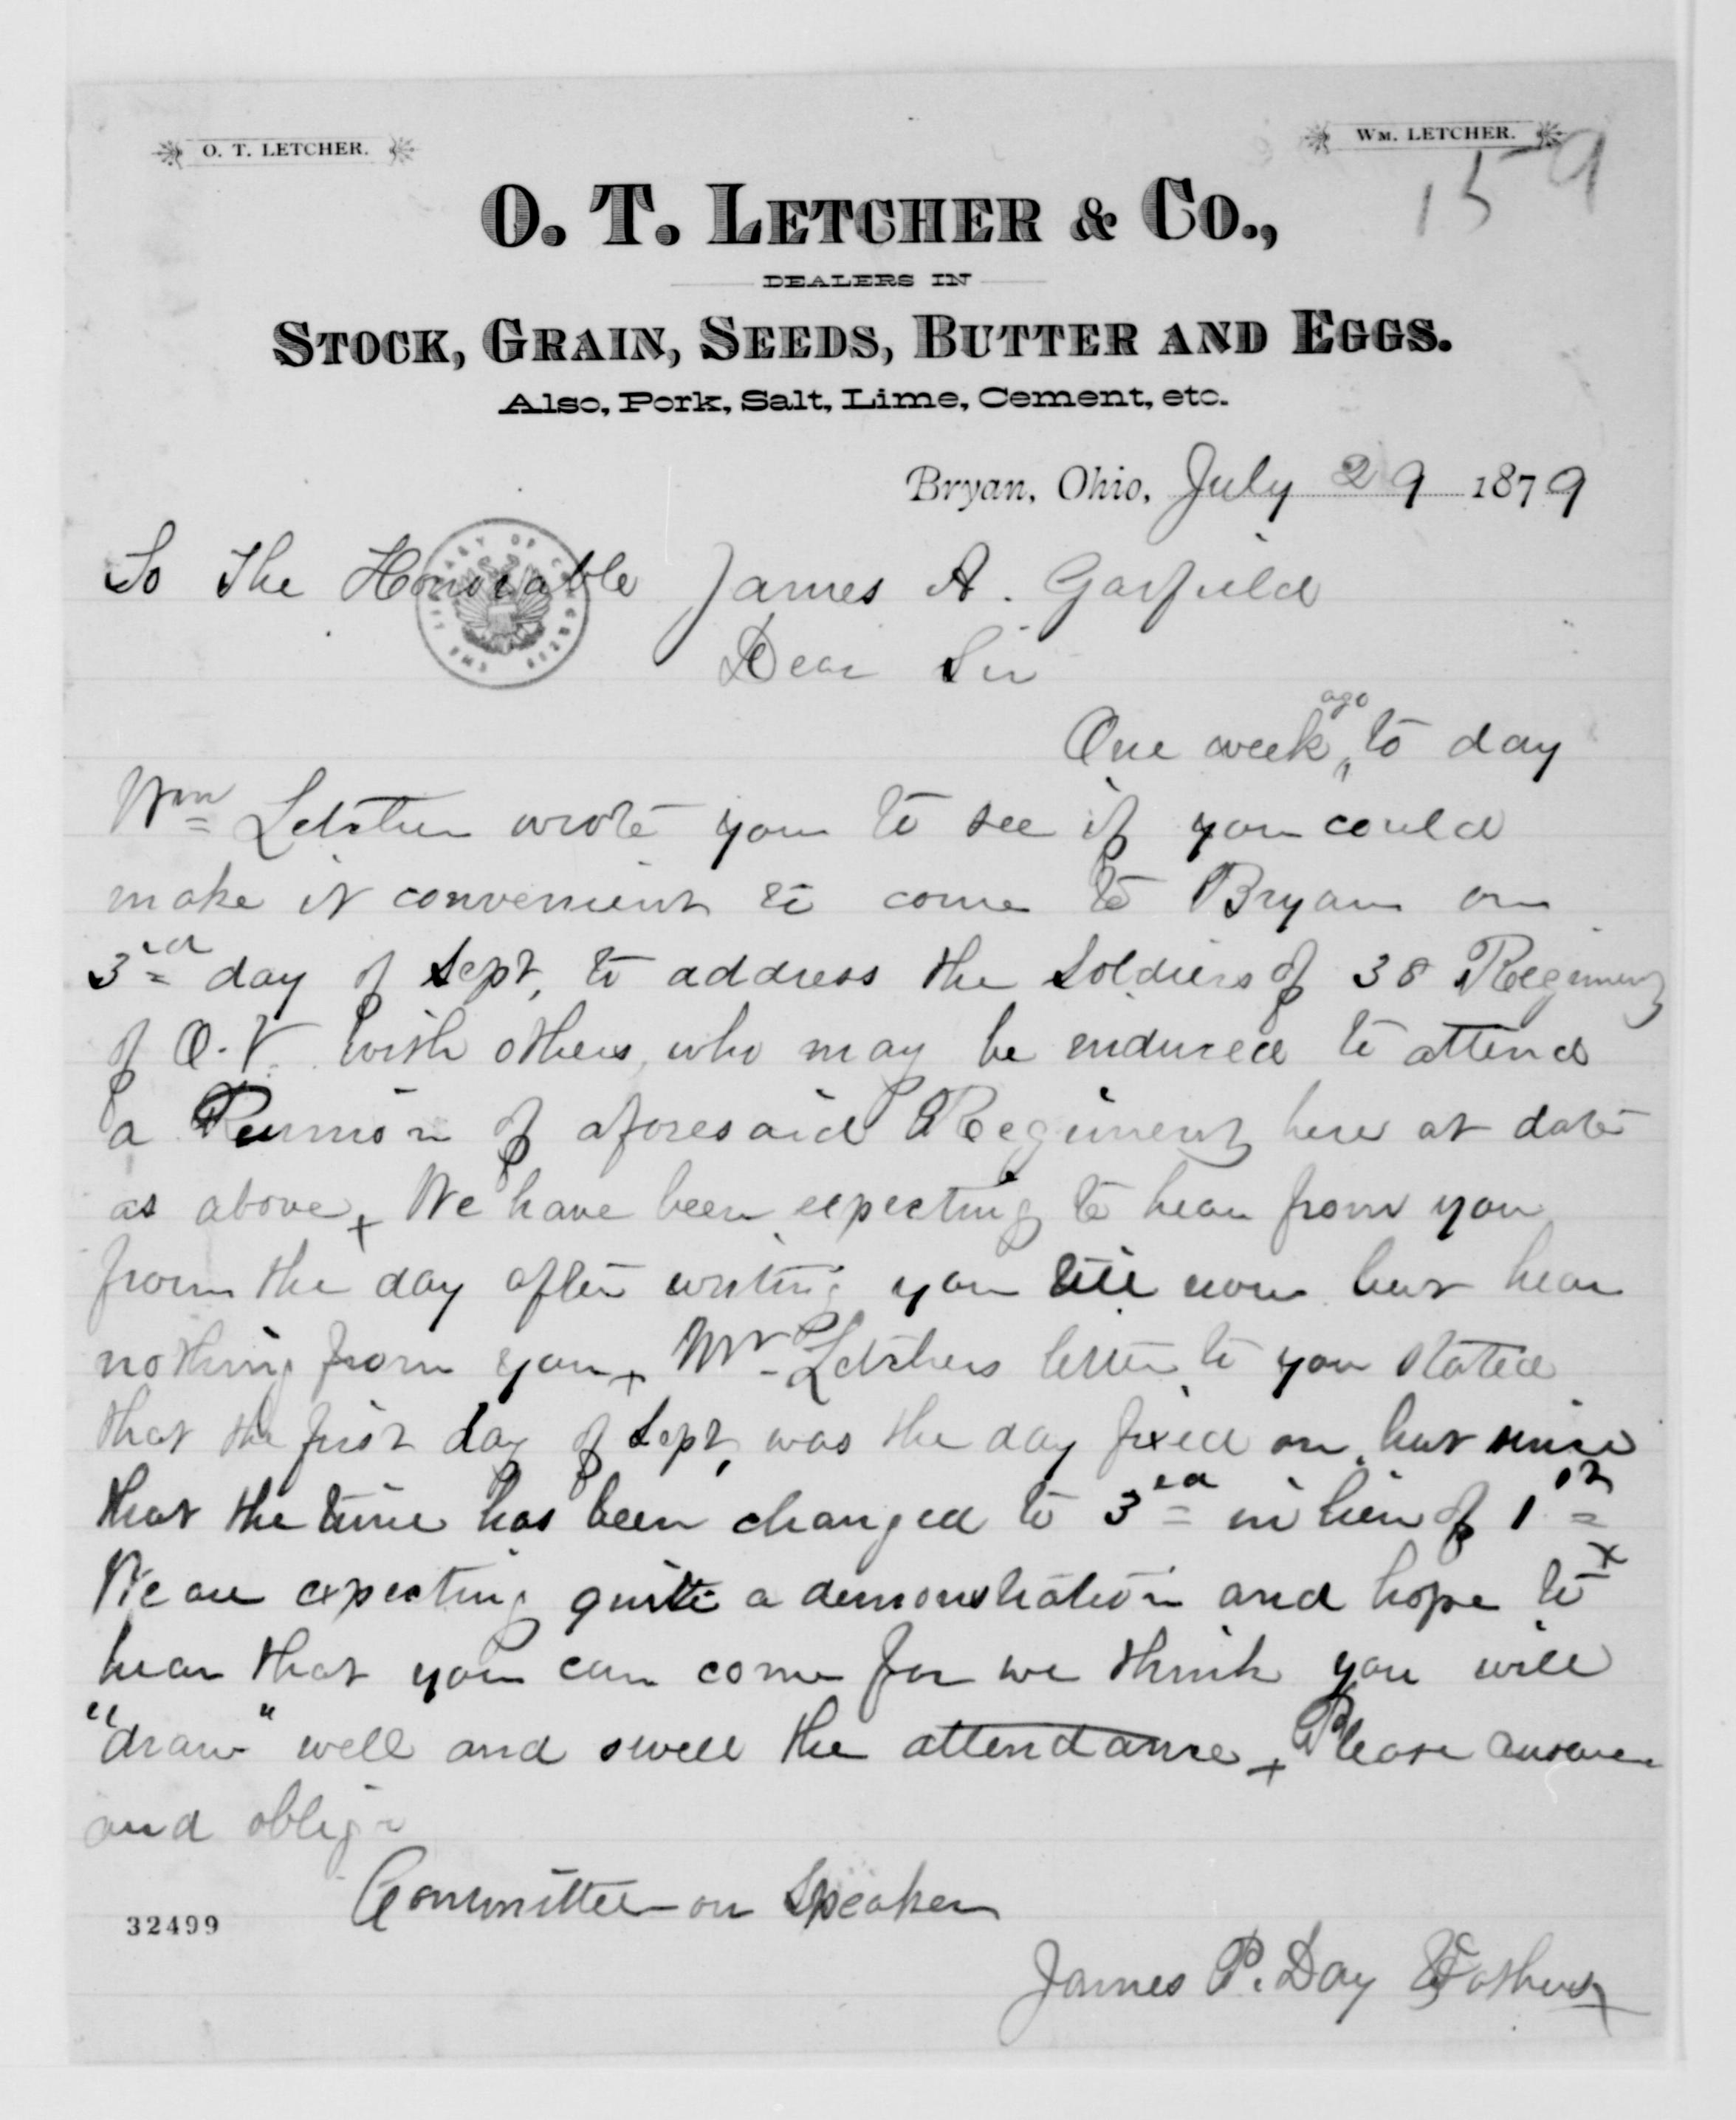 O. T. LETCHER.
WM. LETCHER.
159
O. T. LETCHER & CO.,
DEALERS IN
STOCK, GRAIN, SEEDS, BUTTER AND EGGS.
Also, Pork, Salt, Lime, Cement, etc.
Bryan, Ohio, July 29 1879
To The Honorable James A. Garfield
THE LIBRARY OF CONGRESS
Dear Sir
One week ago to day
Wm Letcher wrote you to see if you could
make it convenient to come to Bryan on
3rd day of Sept, to address the Soldiers of 38 Regiment
of O.V. with others, who may be enduced to attend
a Reunion of aforesaid Regiment here at date
as above + We have been expecting to hear from you
from the day after writing you till now but hear
nothing from you + Mr Letchers letter to you stated
that the first day of Sept, was the day fixed on but since
that the time has been changed to 3rd in lieu of 1st
We are expecting quite a demonstration and hope to x
hear that you can come for we think you will
"draw" well and swell the attendance + Please answer
and oblige
Committee on Speaker
32499
James P. Day & others